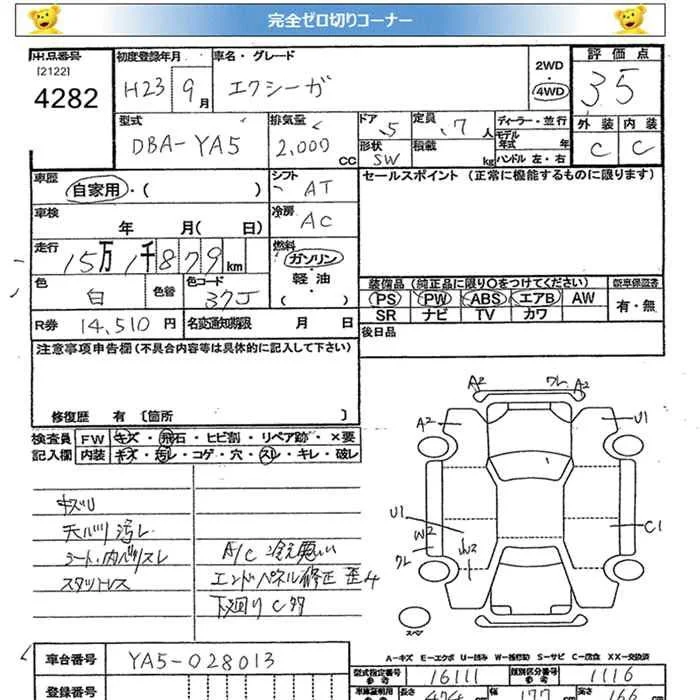 完全ゼロ切りコーナー
出品番号
[2122]
4282
初度登録年月
H23 9月
車名・グレード
エクシーガ
2WD
4WD
評価点
3.5
外装 内装
C C
型式
DBA-YA5
排気量
2,000 CC
ドア 5
形状 SW
定員 7人
積載 kg
ディーラー・並行
モデル年式 年
ハンドル 左・右
車歴
自家用・( )
シフト
AT
車検
年 月( 日)
冷房
AC
走行
15万1千879km
燃料
ガソリン・
軽油・
( )
色
白
色替
色コード
37J
R券 14,510円
名変通知期限 月 日
セールスポイント (正常に機能するものに限ります)
装備品 (純正品に限り○をつけてください)
PS PW ABS エアB AW
SR ナビ TV カワ
新車保証書
有・無
後日品
注意事項申告欄(不具合内容等は具体的に記入して下さい)
修復歴 有 〔箇所 〕
検査員 FW キズ・飛石・ヒビ割・リペア跡・×要
記入欄 内装 キズ・汚レ・コゲ・穴・スレ・キレ・破レ
キズU
天バリ汚レ
シート・内バリスレ
スタットレス
A/C 冷え悪い
エンドパネル修正 歪み
下廻りC多
A2 ワレ A2
A2 U1
U1
W2
ワレ
W2
C1
スペア
A-キズ E-エクボ U-凹み W-補修跡 S-サビ C-腐食 XX-交換済
車台番号 YA5-028013
登録番号
型式指定番号 参考 16111
類別区分番号 参考 1116
車庫証明用 参考
長さ 474cm
幅 177cm
高さ 166cm